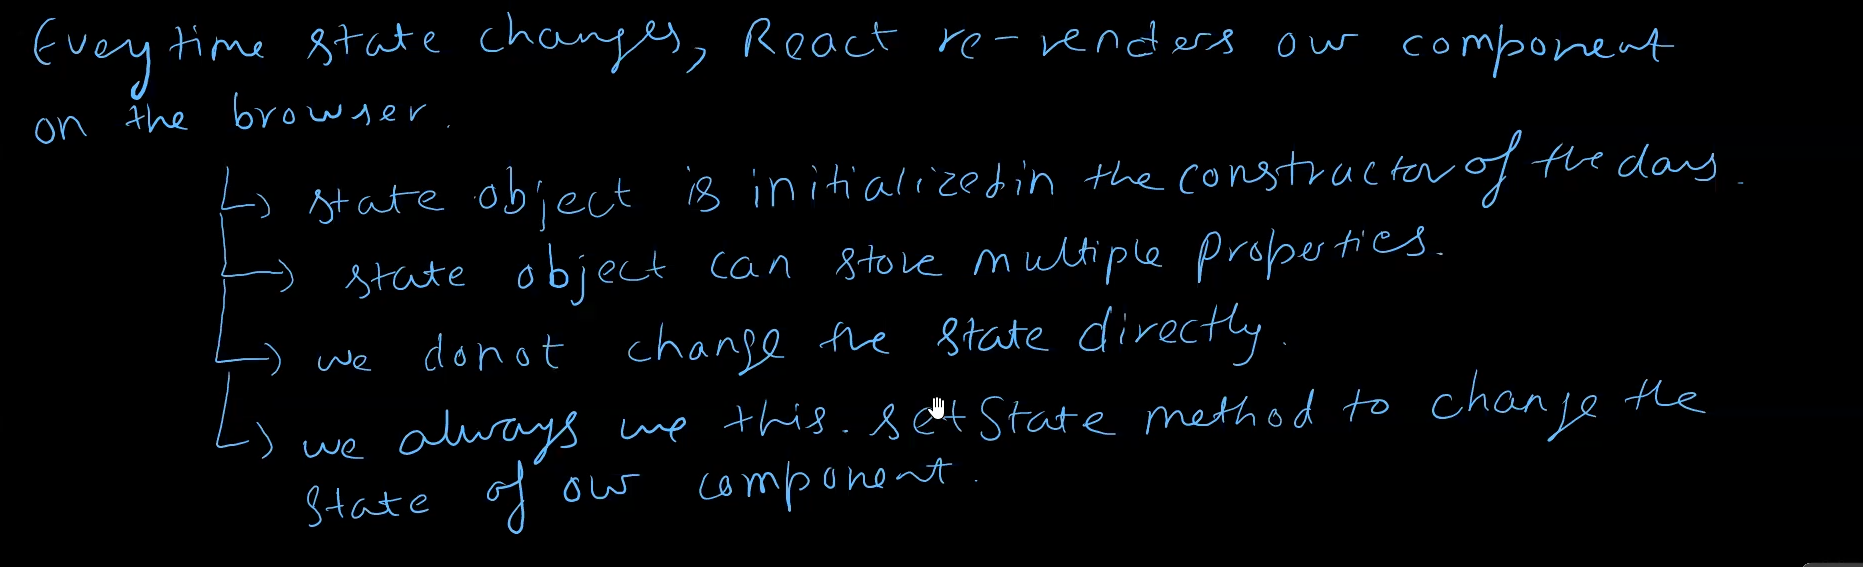 Every time state changes, React re-renders our component
on the browser.
state object is initialized in the constructor of the class.
state object can store multiple properties.
we donot change the state directly.
we always use this.setState method to change the
state of our component.